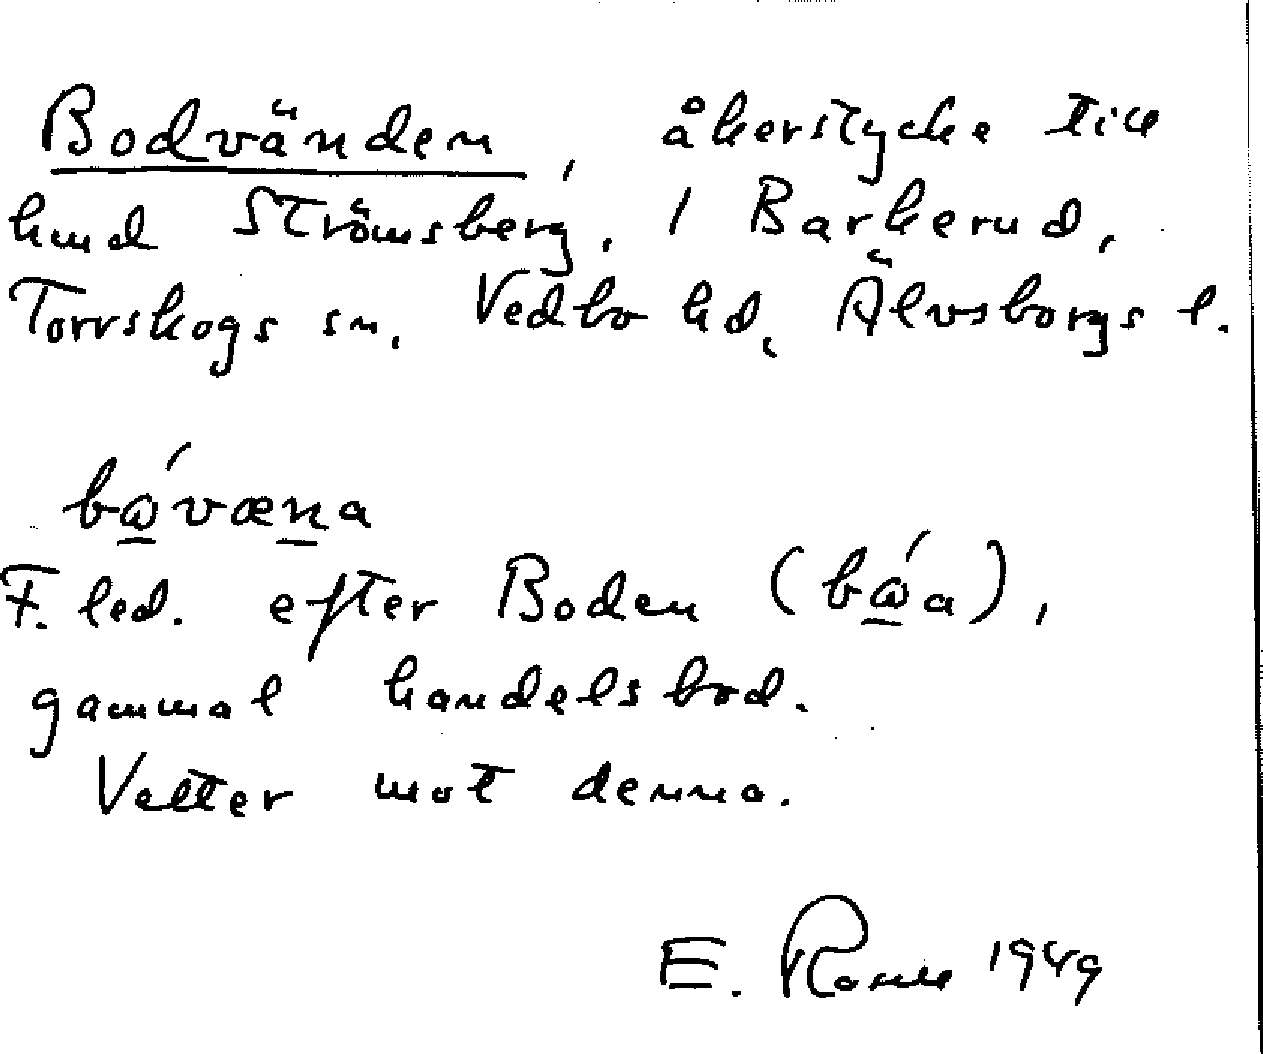 Bodvänden, åkerstycke till
hmd Strömsberg, 1 Barkerud,
Torrskogs sn, Vedbo hd, Älvsborgs l.
bώ̲væn̲a
F. led. efter Boden (bώ̲a),
gammal handelsbod.
Vetter mot denna.
E. 1949